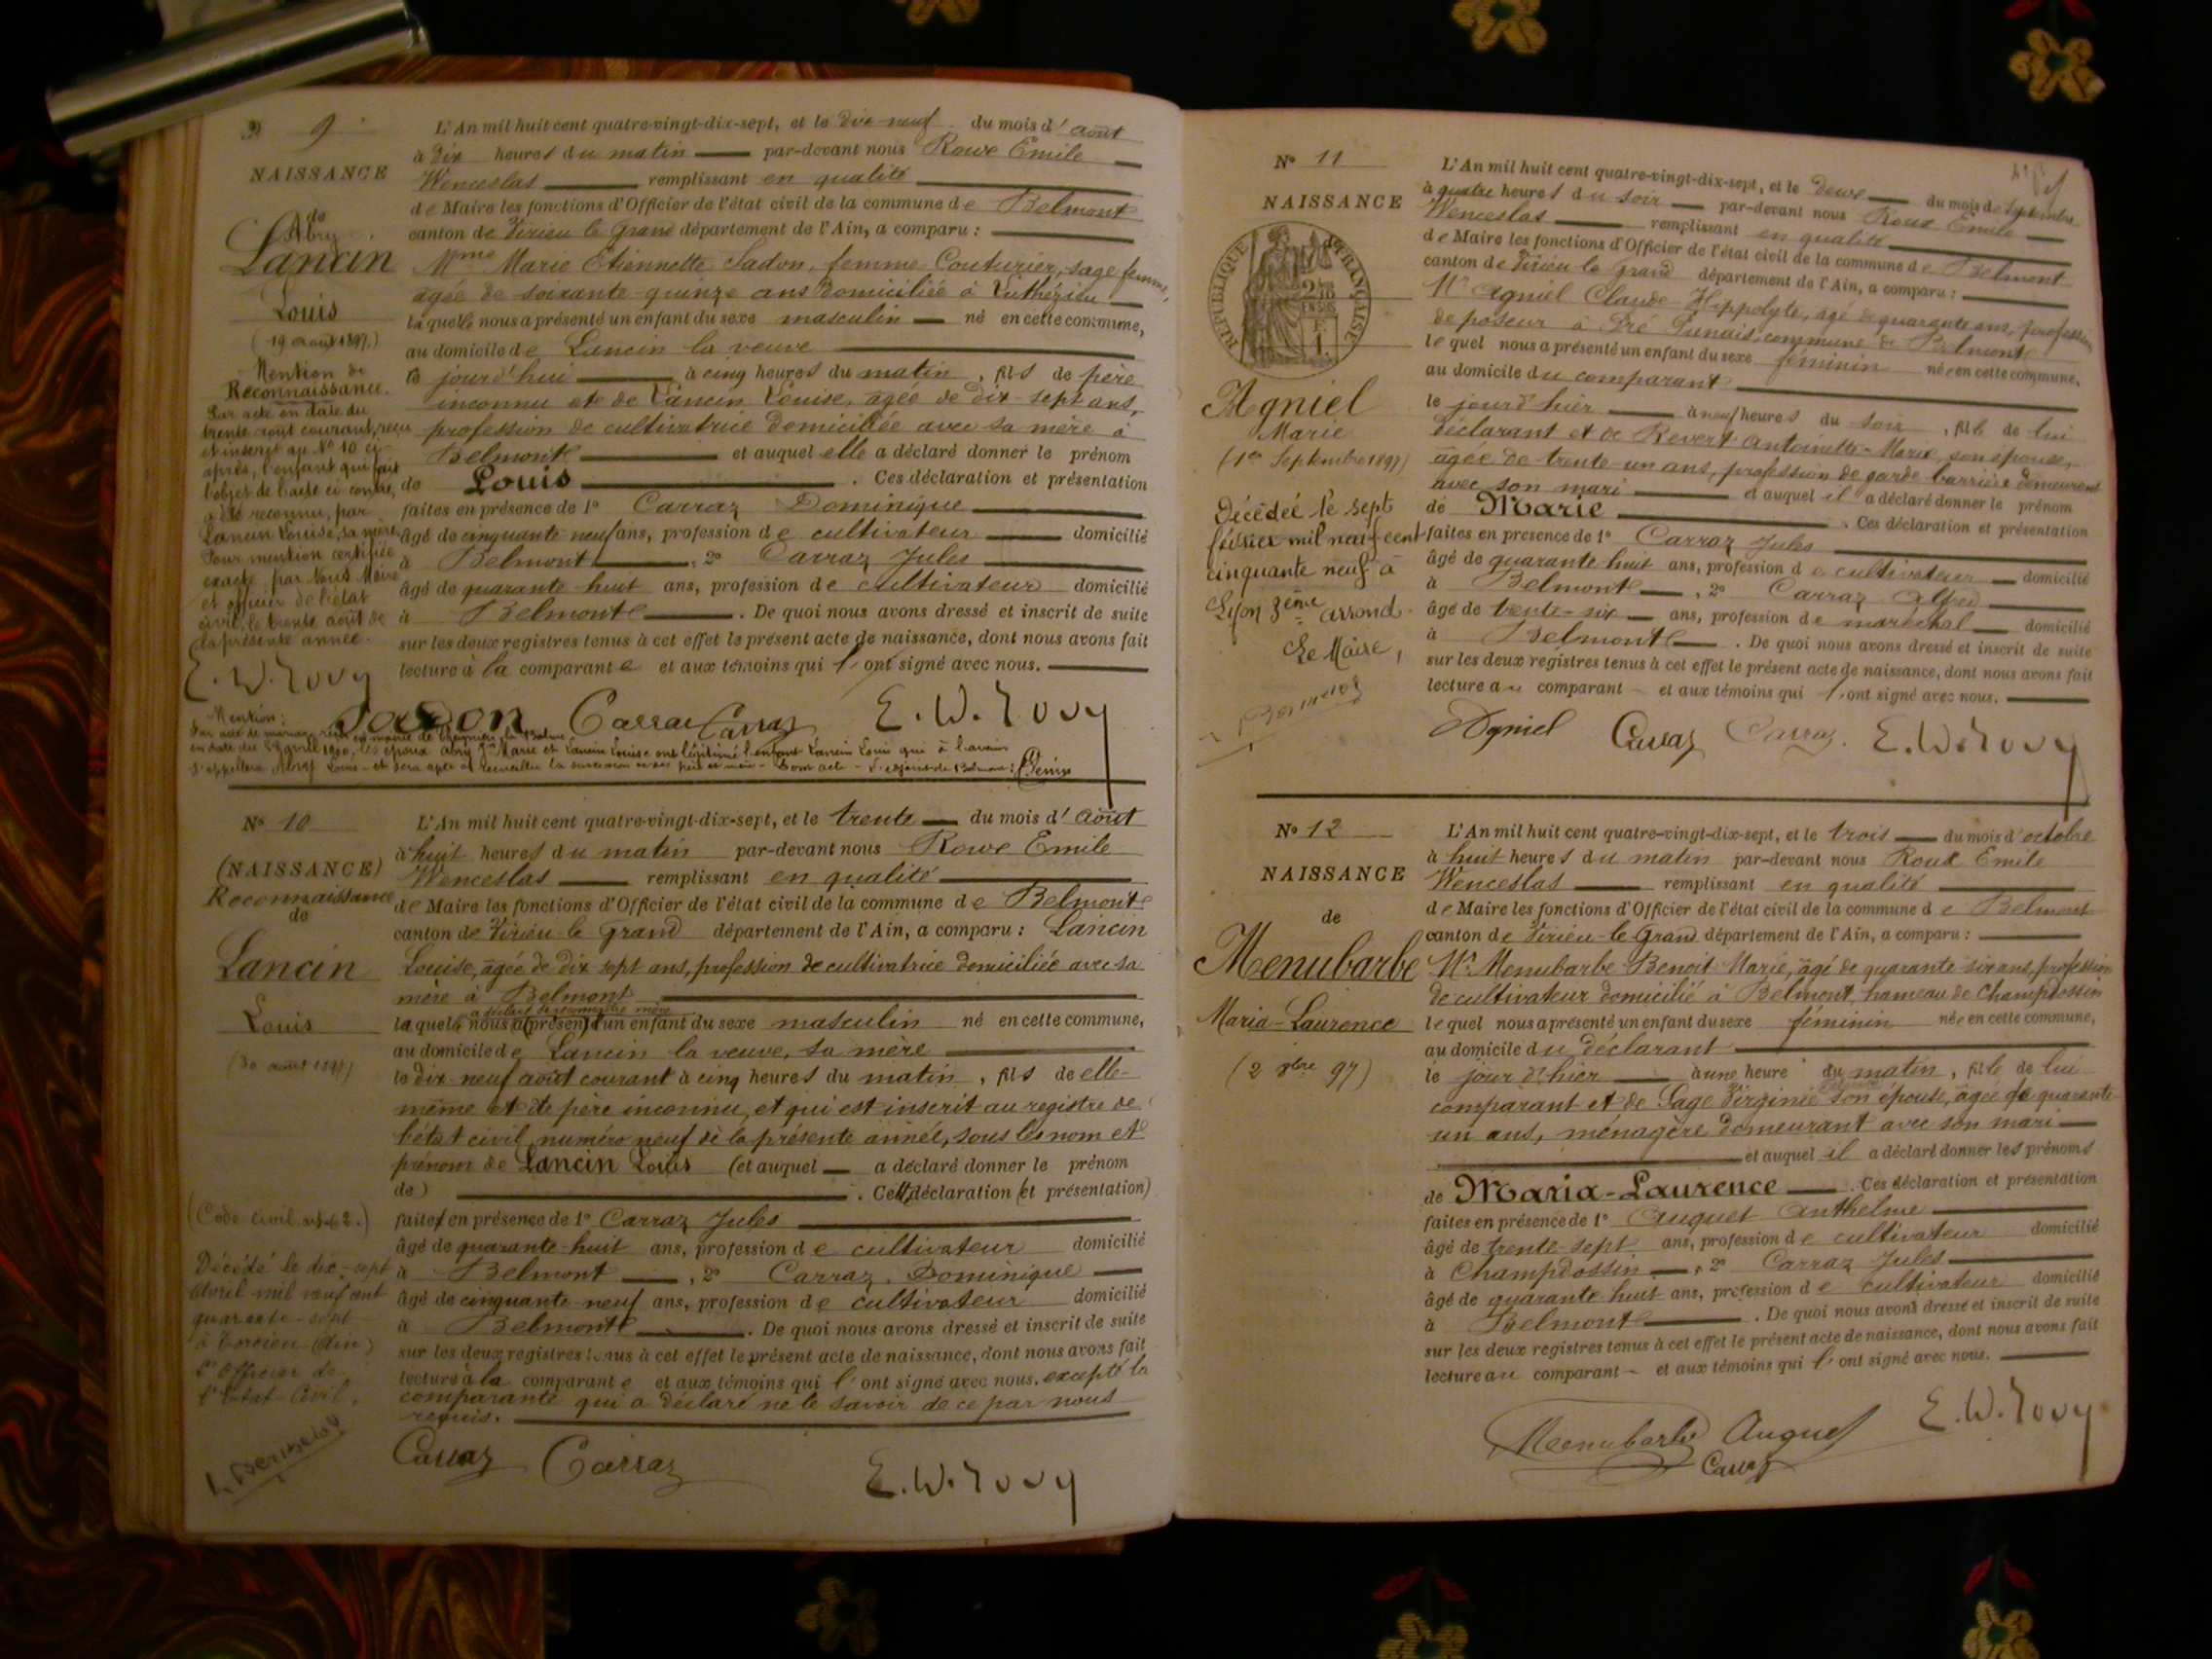 N° 9
NAISSANCE
de
Abry
Lancin
Louis
(19 août 1897.)
Mention de
Reconnaissance.
Par acte en date du
trente août courant, reçu
et inscrit au N° 10 ci-
après, l'enfant qui fait
l'objet de l'acte ci-contre,
a été reconnu, par
Lancin Louise, sa mère.
Pour mention certifiée
exacte par Nous Maire
et officier de l'état
civil, le trente août de
la présente année.
L'An mil huit cent quatre-vingt-dix-sept, et le dix-neuf du mois d'août
à dix heures du matin par-devant nous Roux Emile
Wenceslas remplissant en qualité
de Maire les fonctions d'Officier de l'état civil de la commune de Belmont
canton de Virieu le Grand département de l'Ain, a comparu :
Mme Marie Etiennette Jadon, femme Couturier, sage femme,
agée de soixante-quinze ans domiciliée à Luthézieu
laquelle nous a présenté un enfant du sexe masculin né en cette commune,
au domicile de Lancin la veuve
le jourd'hui à cinq heures du matin, fils de père
inconnu et de Lancin Louise, agée de dix-sept ans,
profession de cultivatrice domiciliée avec sa mère à
Belmont et auquel elle a déclaré donner le prénom
de Louis. Ces déclaration et présentation
faites en présence de 1° Carraz Dominique
âgé de cinquante neuf ans, profession de cultivateur domicilié
à Belmont, 2° Carraz Jules
âgé de quarante-huit ans, profession de cultivateur domicilié
à Belmont. De quoi nous avons dressé et inscrit de suite
sur les deux registres tenus à cet effet le présent acte de naissance, dont nous avons fait
lecture à la comparante et aux témoins qui l'ont signé avec nous.
Jadon Carraz Carraz
Mention:
N° 10
(NAISSANCE)
Reconnaissance
de
Lancin
Louis
(30 août 1897)
(Code civil art 62.)
Décédé le dix-sept
Avril mil neuf cent
quarante-sept
à Torcieu (Ain)
L'Officier de
l'Etat Civil,
L'An mil huit cent quatre-vingt-dix-sept, et le trente du mois d'août
à huit heures du matin par-devant nous Roux Emile
Wenceslas remplissant en qualité
de Maire les fonctions d'Officier de l'état civil de la commune de Belmont
canton de Virieu-le-Grand département de l'Ain, a comparu : Lancin
Louise, agée de dix sept ans, profession de cultivatrice domiciliée avec sa
mère à Belmont
laquelle nous a (présenté) un enfant du sexe masculin né en cette commune,
au domicile de Lancin la veuve, sa mère
le dix-neuf août courant à cinq heures du matin, fils de elle-
même et de père inconnu, et qui est inscrit au registre de
l'état civil, numéro neuf de la présente année, sous les nom et
prénom de Lancin Louis (et auquel a déclaré donner le prénom
de). Cette déclaration (et présentation)
faite en présence de 1° Carraz Jules
âgé de quarante-huit ans, profession de cultivateur domicilié
à Belmont, 2° Carraz Dominique
âgé de cinquante-neuf ans, profession de cultivateur domicilié
à Belmont. De quoi nous avons dressé et inscrit de suite
sur les deux registres tenus à cet effet le présent acte de naissance, dont nous avons fait
lecture à la comparante et aux témoins qui l'ont signé avec nous. excepté la
comparante qui a déclaré ne le savoir de ce par nous
requis.
Carraz Carraz
N° 11
NAISSANCE
RÉPUBLIQUE FRANÇAISE
Agniel
Marie
(1er Septembre 1897)
Décédée le sept
février mil neuf cent
cinquante neuf à
Lyon 3ème arrond.
Le Maire,
L'An mil huit cent quatre-vingt-dix-sept, et le deux du mois de Septembre
à quatre heures du soir par-devant nous Roux Emile
Wenceslas remplissant en qualité
de Maire les fonctions d'Officier de l'état civil de la commune de Belmont
canton de Virieu-le-Grand département de l'Ain, a comparu :
Mr Agniel Claude Hippolyte, âgé de quarante ans, profession
de poseur à Pré Punais, commune de Belmont
lequel nous a présenté un enfant du sexe féminin née en cette commune,
au domicile du comparant
le jourd'hier à neuf heures du soir, fille de lui
déclarant et de Revert Antoinette-Marie, son épouse,
agée de trente-un ans, profession de garde barrière demeurant
avec son mari et auquel il a déclaré donner le prénom
de Marie. Ces déclaration et présentation
faites en présence de 1° Carraz Jules
âgé de quarante huit ans, profession de cultivateur domicilié
à Belmont, 2° Carraz Alfred
âgé de trente-six ans, profession de maréchal domicilié
à Belmont. De quoi nous avons dressé et inscrit de suite
sur les deux registres tenus à cet effet le présent acte de naissance, dont nous avons fait
lecture au comparant et aux témoins qui l'ont signé avec nous.
Agniel Carraz Carraz
N° 12
NAISSANCE
de
Menubarbe
Maria-Laurence
(2 8bre 97)
L'An mil huit cent quatre-vingt-dix-sept, et le trois du mois d'octobre
à huit heures du matin par-devant nous Roux Emile
Wenceslas remplissant en qualité
de Maire les fonctions d'Officier de l'état civil de la commune de Belmont
canton de Virieu-le-Grand département de l'Ain, a comparu :
Mr Menubarbe Benoit Marie, âgé de quarante-six ans, profession
de cultivateur domicilié à Belmont, hameau de Champdossin
lequel nous a présenté un enfant du sexe féminin née en cette commune,
au domicile du déclarant
le jour d'hier à une heure du matin, fille de lui
comparant et de Sage Virginie son épouse, agée de quarante-
un ans, ménagère demeurant avec son mari
et auquel il a déclaré donner les prénoms
de Maria-Laurence. Ces déclaration et présentation
faites en présence de 1° Auguet Anthelme
âgé de trente-sept ans, profession de cultivateur domicilié
à Champdossin, 2° Carraz Jules
âgé de quarante-huit ans, profession de cultivateur domicilié
à Belmont. De quoi nous avons dressé et inscrit de suite
sur les deux registres tenus à cet effet le présent acte de naissance, dont nous avons fait
lecture au comparant et aux témoins qui l'ont signé avec nous.
Menubarbe Auguet
Carraz